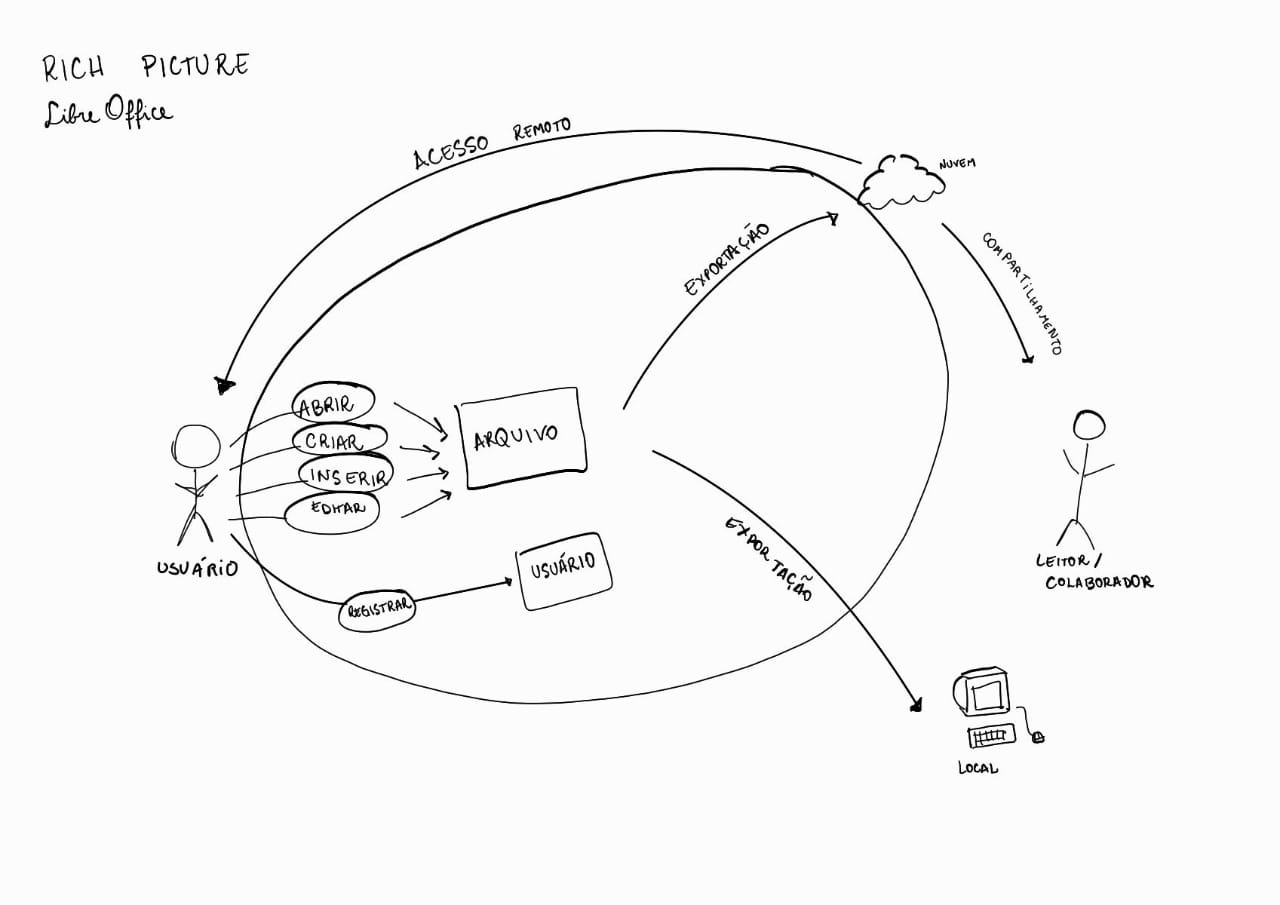 RICH PICTURE
Libre Office
ACESSO REMOTO
NUVEM
EXPORTAÇÃO
COMPARTILHAMENTO
ABRIR
CRIAR
INSERIR
EDITAR
ARQUIVO
USUÁRIO
REGISTRAR
USUÁRIO
EXPORTAÇÃO
LEITOR/
COLABORADOR
LOCAL